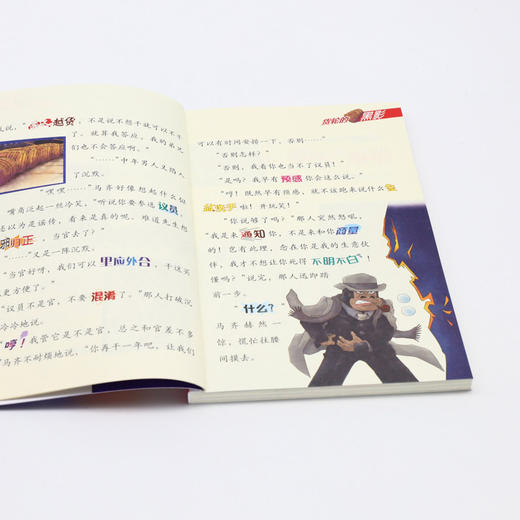 越货”，不是说不想干就可以不干
了。就算我答应，我的弟兄
们也不会答应啊。”
“……”中年男人又陷入
了沉默。
“嘿嘿……”马齐好像想起什么似
嘴角泛起一丝冷笑，“听说你要参选议员，
还以为是谣传，看来是真的呢。难道先生想
归正，当官去了？”
“……”又是一阵沉默。
“当官好呀，我们可以里应外合，干送买
更方便了。”
“议员不是官，不要混淆了。”那人打破沉
冷冷地说。
“哼！我管它是不是官，总之和官差不多
马齐不耐烦地说，“你再干一年吧，让我们
货轮的黑影
可以有时间安排一下，否则……”
“否则怎样？”
“否则，我看你也当不了议员！”
“是吗？我早有预感你会这么说。”
“哼！既然早有预感，就不该跑来说什么
啦！开玩笑！”
“你说够了吗？”那人突然怒吼，
“我是来通知你，不是来和你商量
的！岂有此理，念在你是我的生意伙
伴，我才不想让你死得不明不白！
懂吗？”说完，那人迅即踏
前一步。
“什么？”
马齐赫然一
惊，慌忙往腰
间摸去。